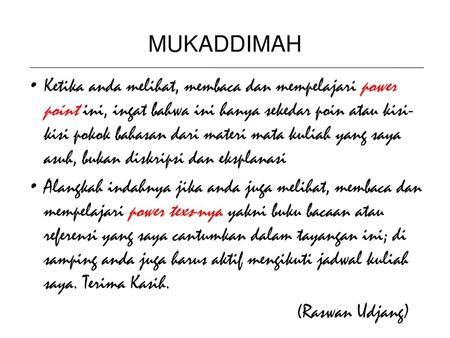 MUKADDIMAH
• Ketika anda melihat, membaca dan mempelajari power
point ini, ingat bahwa ini hanya sekedar poin atau kisi-
kisi pokok bahasan dari materi mata kuliah yang saya
asuh, bukan diskripsi dan eksplanasi
• Alangkah indahnya jika anda juga melihat, membaca dan
mempelajari power texs-nya yakni buku bacaan atau
referensi yang saya cantumkan dalam tayangan ini; di
samping anda juga harus aktif mengikuti jadwal kuliah
saya. Terima Kasih.
(Raswan Udjang)